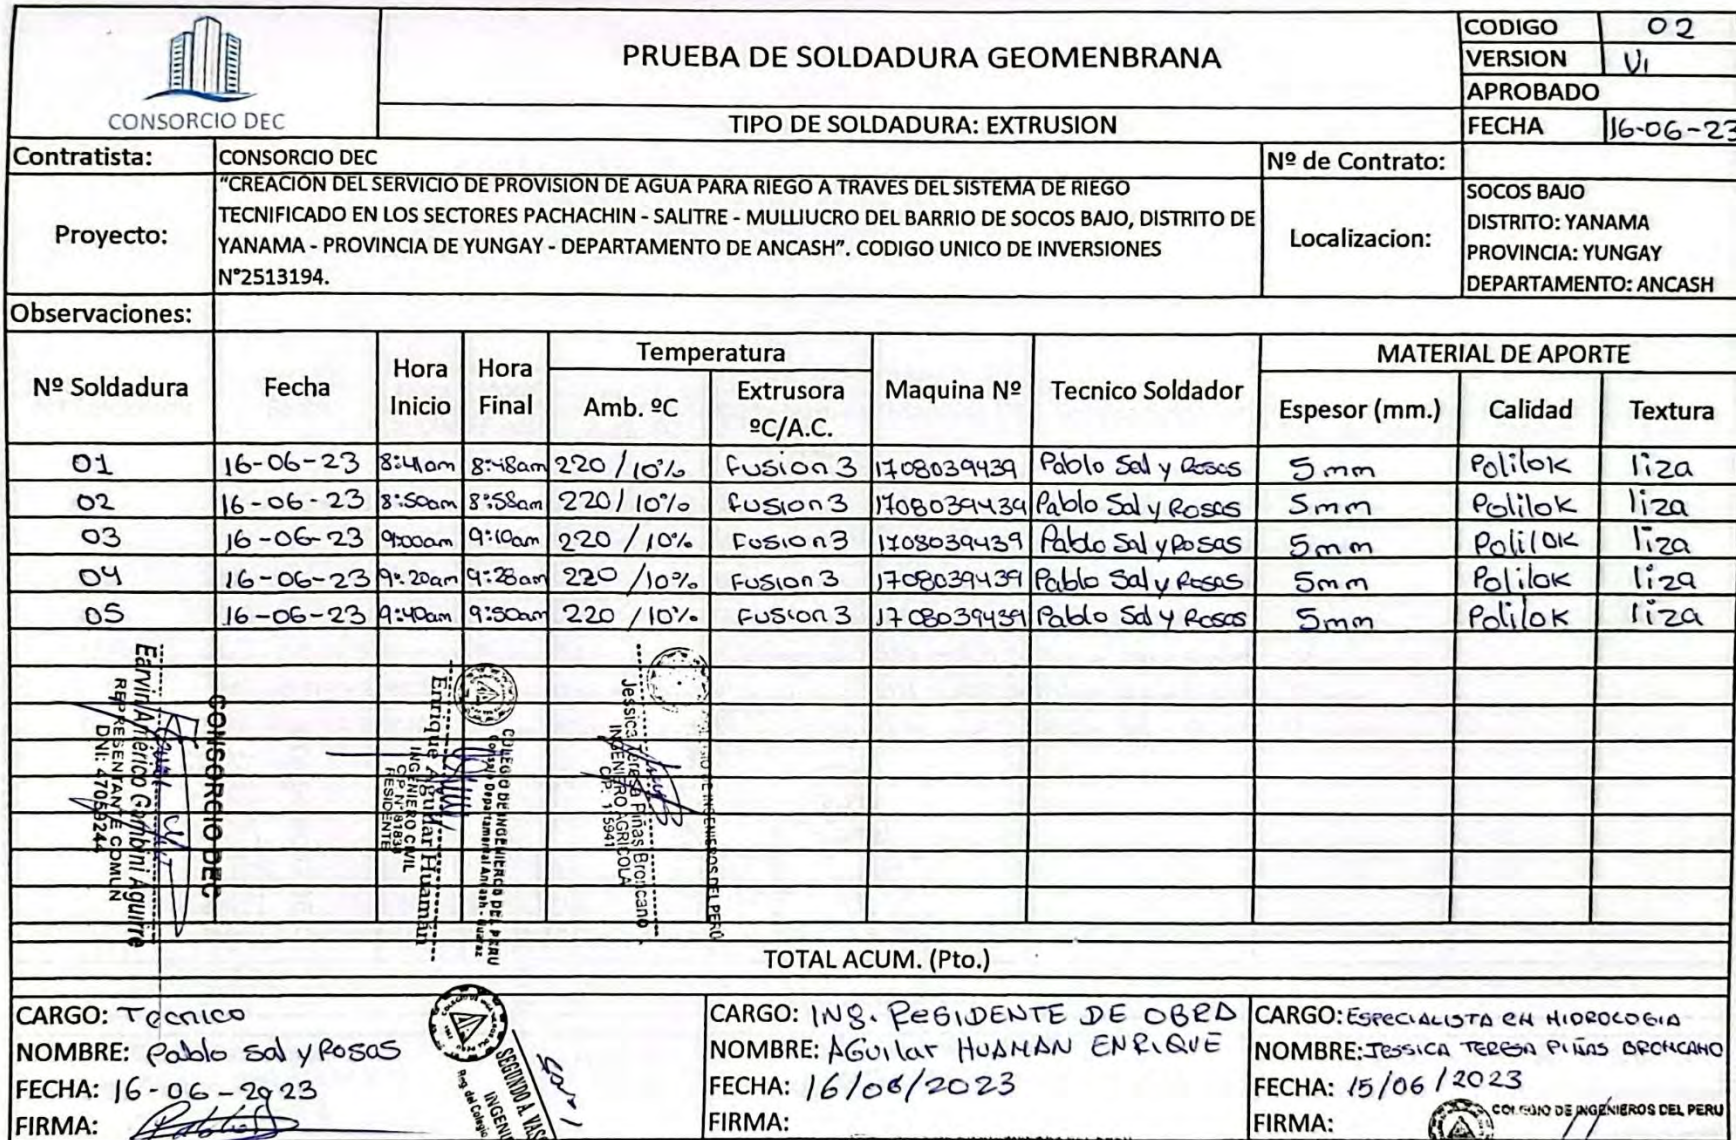 CONSORCIO DEC
PRUEBA DE SOLDADURA GEOMENBRANA
TIPO DE SOLDADURA: EXTRUSION
CODIGO 02
VERSION V1
APROBADO
FECHA 16-06-23
Contratista: CONSORCIO DEC Nº de Contrato:
Proyecto:
"CREACIÓN DEL SERVICIO DE PROVISION DE AGUA PARA RIEGO A TRAVES DEL SISTEMA DE RIEGO
TECNIFICADO EN LOS SECTORES PACHACHIN - SALITRE - MULLIUCRO DEL BARRIO DE SOCOS BAJO, DISTRITO DE
YANAMA - PROVINCIA DE YUNGAY - DEPARTAMENTO DE ANCASH". CODIGO UNICO DE INVERSIONES
N°2513194.
Localizacion:
SOCOS BAJO
DISTRITO: YANAMA
PROVINCIA: YUNGAY
DEPARTAMENTO: ANCASH
Observaciones:
Nº Soldadura Fecha Hora Inicio Hora Final Temperatura Amb. ºC Extrusora ºC/A.C. Maquina Nº Tecnico Soldador MATERIAL DE APORTE Espesor (mm.) Calidad Textura
01 16-06-23 8:41am 8:48am 220/10% Fusion 3 1708039439 Pablo Sal y Rosas 5mm Polilok liza
02 16-06-23 8:50am 8:58am 220/10% Fusion 3 1708039439 Pablo Sal y Rosas 5mm Polilok liza
03 16-06-23 9:00am 9:10am 220/10% Fusion 3 1708039439 Pablo Sal y Rosas 5mm Polilok liza
04 16-06-23 9:20am 9:28am 220/10% Fusion 3 1708039439 Pablo Sal y Rosas 5mm Polilok liza
05 16-06-23 9:40am 9:50am 220/10% Fusion 3 1708039439 Pablo Sal y Rosas 5mm Polilok liza
CONSORCIO DEC
Earvin Américo Gambini Aguirre
REPRESENTANTE COMUN
DNI: 47059244
COLEGIO DE INGENIEROS DEL PERU
Consejo Departamental Ancash - Huaraz
Enrique Aguilar Huamán
INGENIERO CIVIL
CIP Nº 81834
RESIDENTE
INGENIEROS DEL PERÚ
Jessica Teresa Piñas Broncano
INGENIERO AGRICOLA
CIP. 115941
TOTAL ACUM. (Pto.)
CARGO: Tecnico
NOMBRE: Pablo sal y Rosas
FECHA: 16-06-2023
FIRMA:
SEGUNDO A.
CARGO: ING. RESIDENTE DE OBRA
NOMBRE: AGuilar HUAMAN ENRIQUE
FECHA: 16/06/2023
FIRMA:
CARGO: ESPECIALISTA EN HIDROLOGIA
NOMBRE: JESSICA TERESA PIÑAS BRONCANO
FECHA: 15/06/2023
FIRMA:
COLEGIO DE INGENIEROS DEL PERU